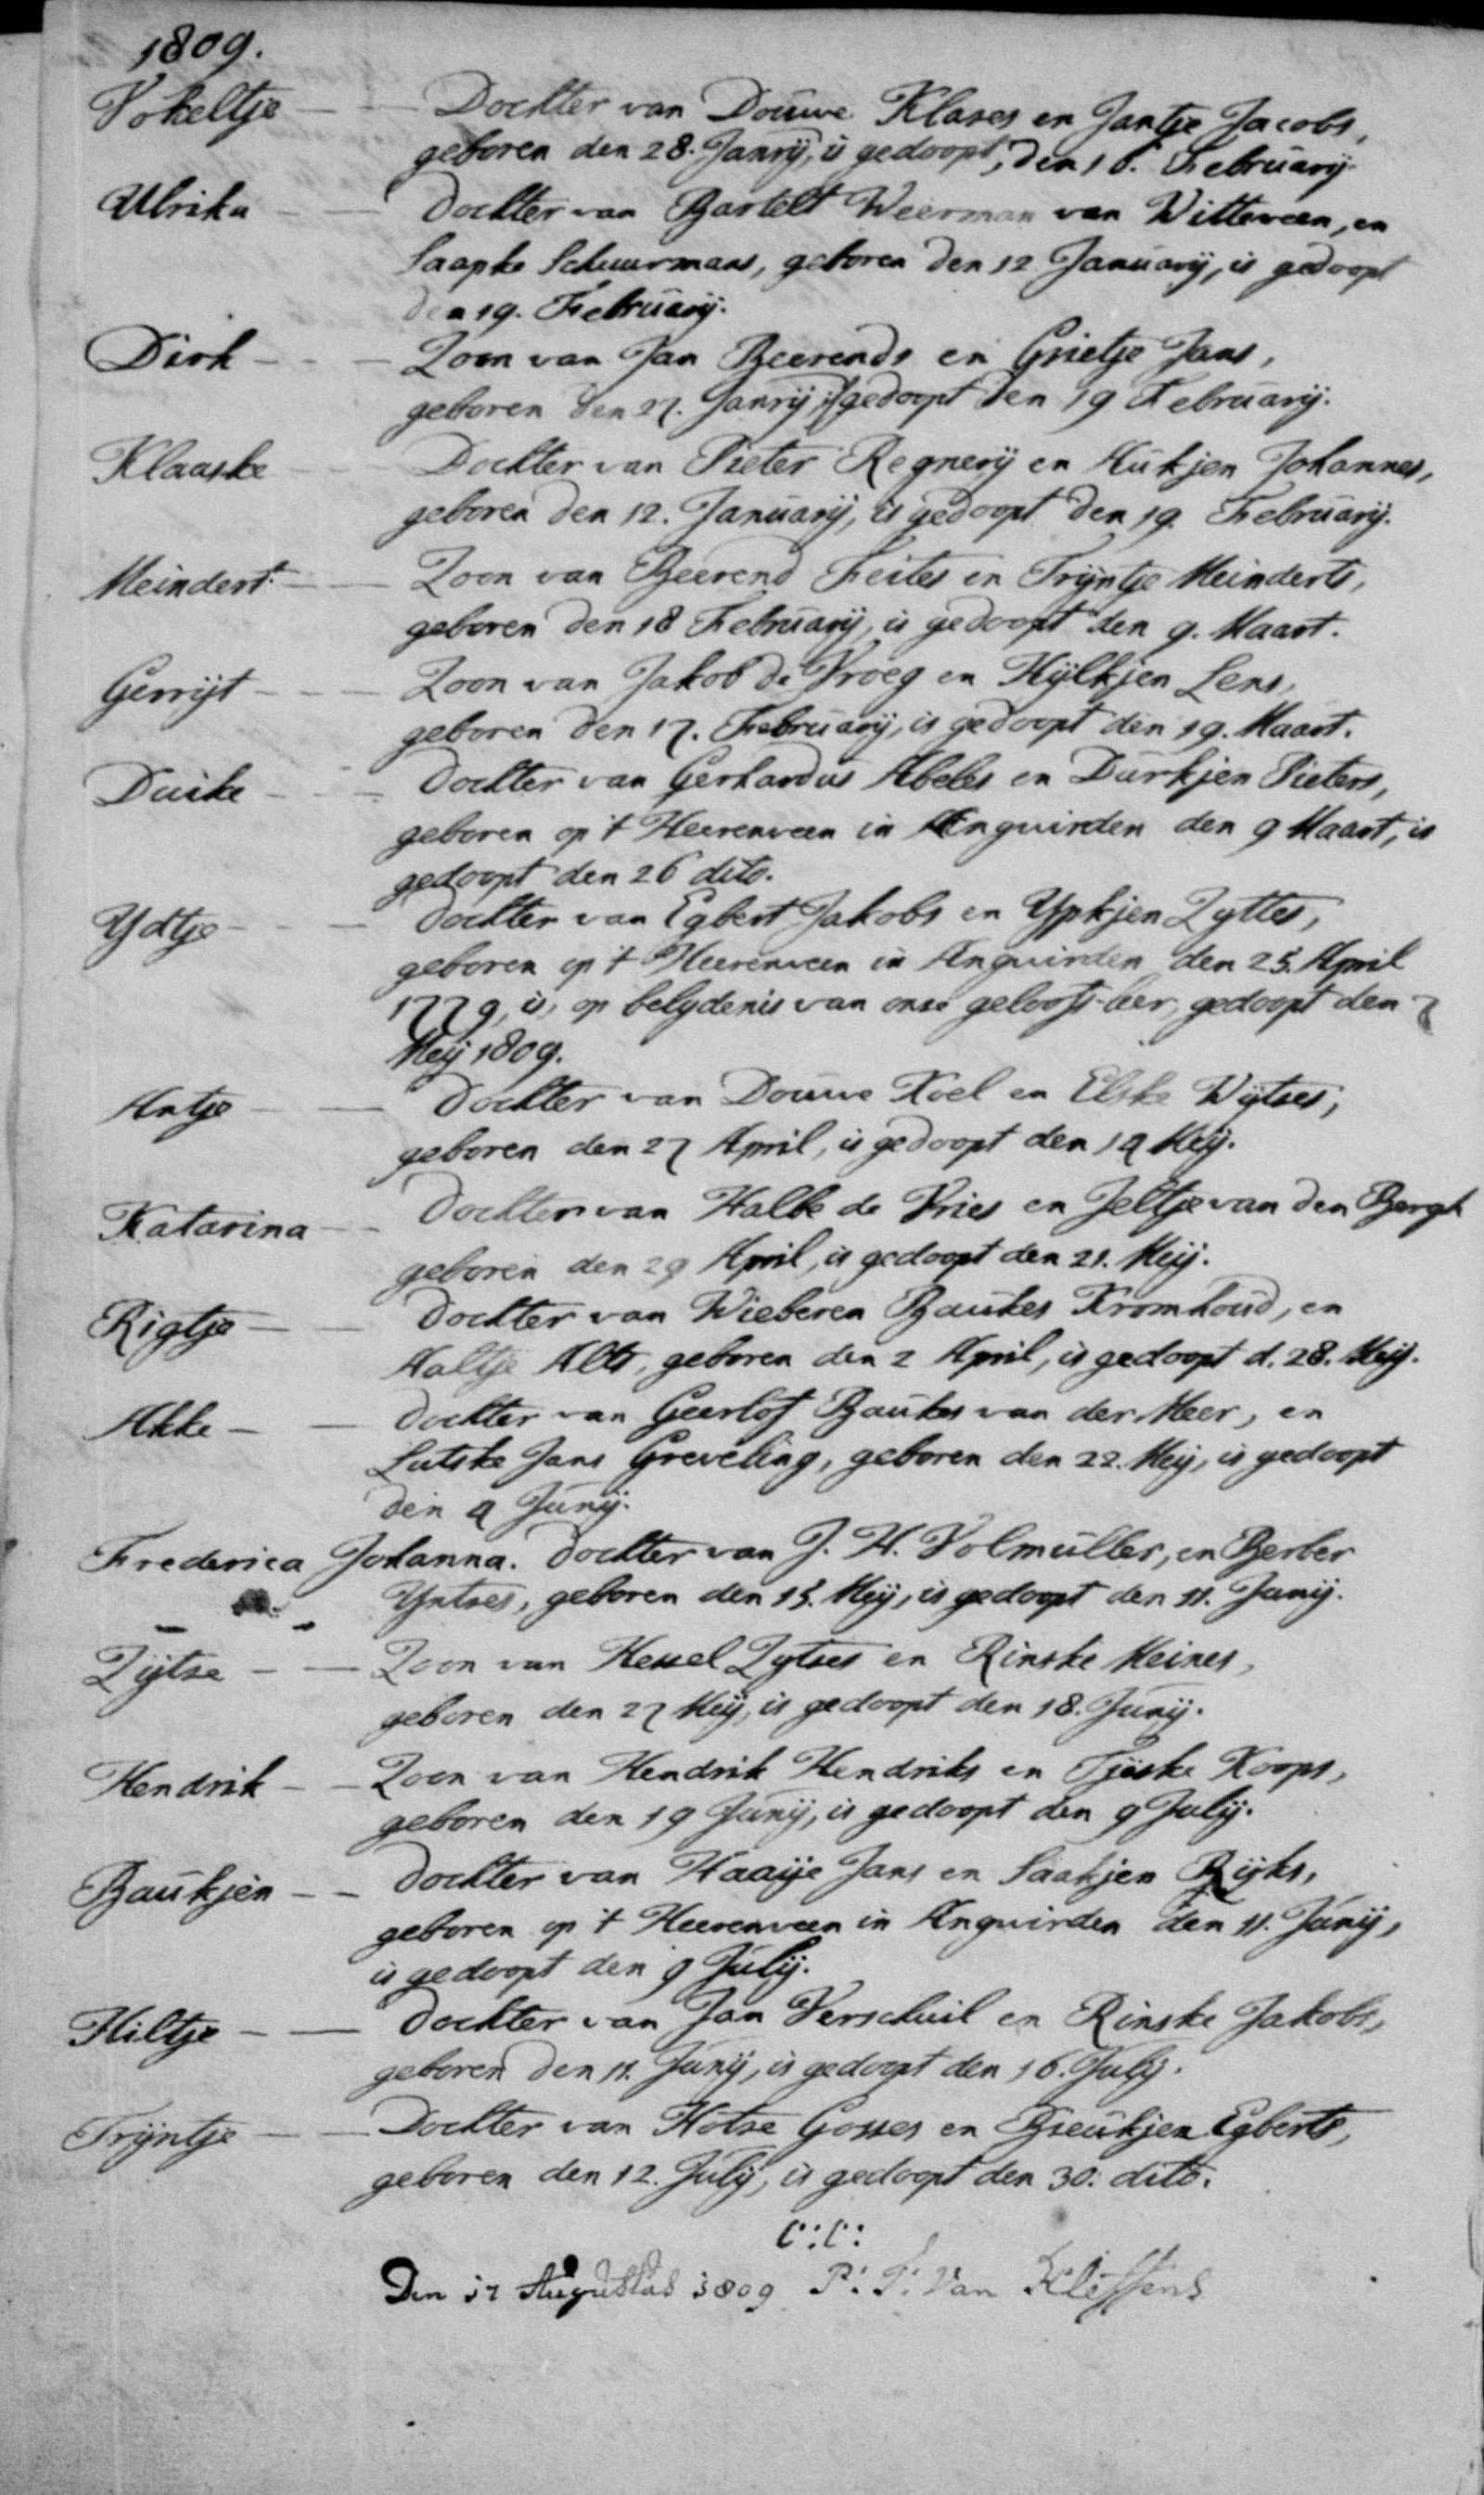 1809.
Vokeltje — Dochter van Douwe Klases en Jantje Jacobs,
geboren den 28. Janrij, is gedoopt, den 16. Februarij
Ulrika — Dochter van Bartelt Weerman van Witteveen, en
Saapke Schuurmans, geboren den 12 Januarij, is gedoopt
den 19. Februarij.
Dirk — Zoon van Jan Beerends en Grietje Jans,
geboren den 27. Janrij, is gedoopt den 19 Februarij.
Klaaske Dochter van Pieter Regnerij en Aukjen Johannes,
geboren den 12. Januarij, is gedoopt den 19. Februarij.
Meindert — Zoon van Beerend Feites en Trijntje Meinderts,
geboren den 18 Februarij, is gedoopt den 9. Maart.
Gerrijt — Zoon van Jakob de Vroeg en Hijlkjen Lens,
geboren den 17. Februarij, is gedoopt den 19. Maart.
Duike — Dochter van Gerhardus Abeles en Durkjen Pieters,
geboren op 't Heerenveen in Ængwirden den 9 Maart, is
gedoopt den 26 dito.
Ydtje — Dochter van Egbert Jakobs en Ypkjen Zyttes,
geboren op 't Heerenveen in Ængwirden den 25. April
1779, is, op belydenis van onse geloofs-leer, gedoopt den 7
Meij 1809.
Antje — Dochter van Douwe Koel en Elske Wijtses,
geboren den 27 April, is gedoopt den 14 Meij.
Katarina — Dochter van Halbe de Vries en Jeltje van den Bergh
geboren den 29 April, is gedoopt den 21. Meij.
Rigtje — Dochter van Wieberen Baukes Kromhoud, en
Aaltje Alts, geboren den 2 April, is gedoopt d. 28. Meij.
Akke — Dochter van Geerlof Baukes van der Meer, en
Lutske Jans Greveling, geboren den 22. Meij, is gedoopt
den 4 Junij.
Frederica Johanna. Dochter van J. H. Volmuller, en Berber
Yntses, geboren den 15. Meij, is gedoopt den 11. Junij.
Zijtse — Zoon van Hessel Zytses en Rinske Meines,
geboren den 27 Meij, is gedoopt den 18. Junij.
Hendrik — Zoon van Hendrik Hendriks en Tjiske Koops,
geboren den 19 Junij, is gedoopt den 9 Julij.
Baukjen — Dochter van Haaije Jans en Saakjen Rijks,
geboren op 't Heerenveen in Ængwirden den 11. Junij,
is gedoopt den 9 Julij.
Hiltje — Dochter van Jan Verschuil en Rinske Jakobs,
geboren den 11. Junij, is gedoopt den 16. Julij.
Trijntje — Dochter van Hotse Gosses en Bieukjen Egberts,
geboren den 12. Julij, is gedoopt den 30. dito.
C:C:
Den 17 Augustus 1809 P: T: Van Kleffens